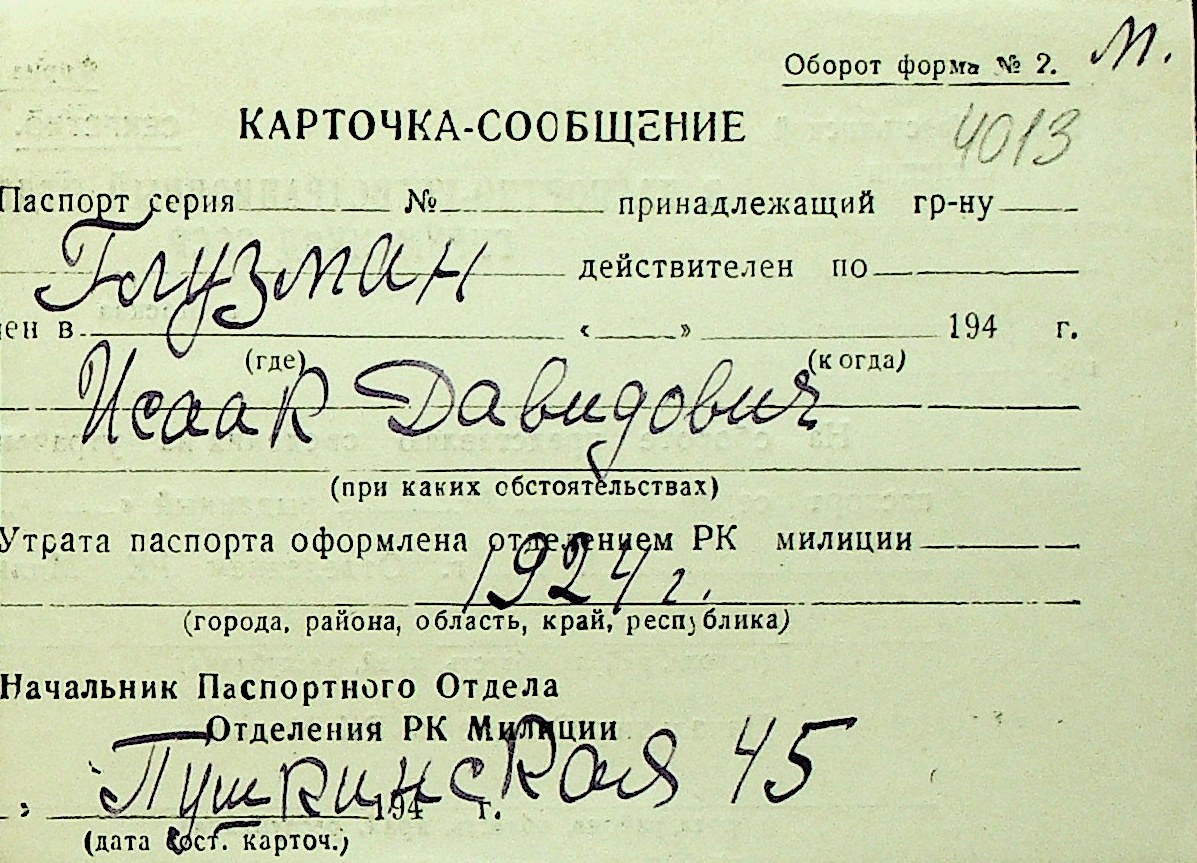 Оборот форма № 2. М.
КАРТОЧКА-СООБЩЕНИЕ 4013
Паспорт серия № принадлежащий гр-ну
Глузман действителен по
ен в « » 194 г.
(где) (когда)
Исаак Давидович
(при каких обстоятельствах)
Утрата паспорта оформлена отделением РК милиции
1924 г.
(города, района, область, край, республика)
Начальник Паспортного Отдела
Отделения РК Милиции
Пушкинская 45
» 194 г.
(дата сост. карточ.)